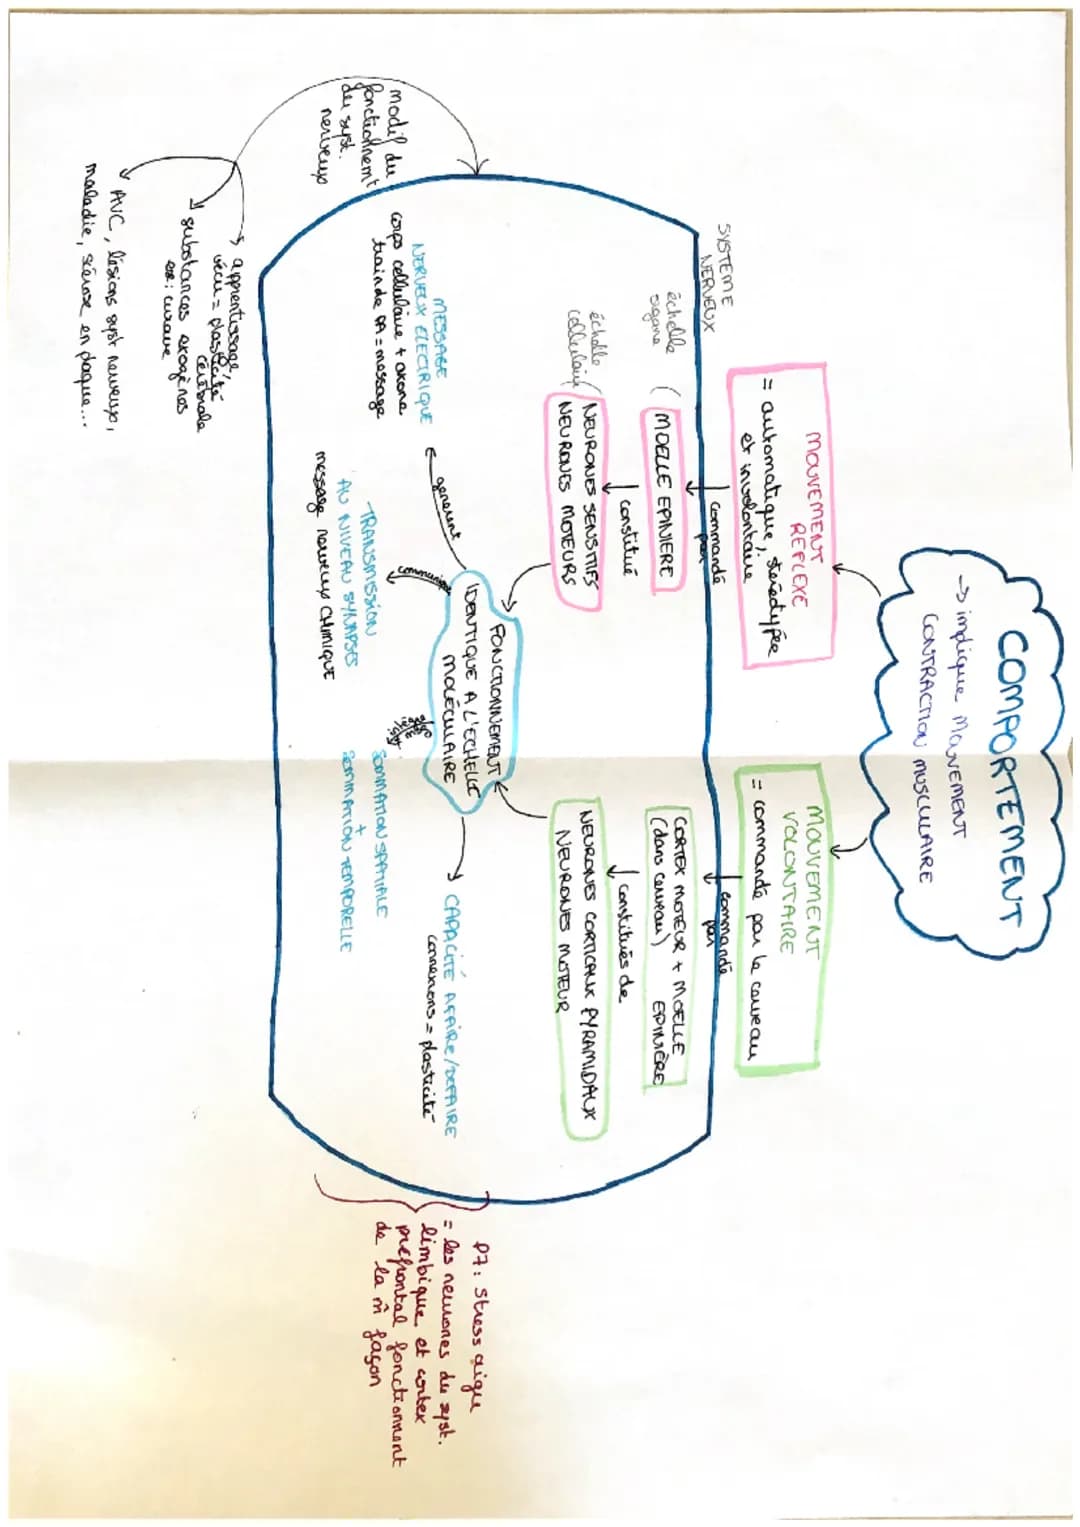 COMPORTEMENT
→ implique MOUVEMENT
CONTRACTION MUSCULAIRE
MOUVEMENT
REFLEXE
= automatique, stéréotypée
et involontaire
MOUVEMENT
VOLONTAIRE
= commandé par le cerveau
commandé
par
commandé
par
SYSTEME
NERVEUX
échelle
organe
( MOELLE EPINIERE
CORTEX MOTEUR + MOELLE
(dans cerveau) EPINIÈRE
constitué
constitués de
échelle
cellulaire
( NEURONES SENSITIFS
NEURONES MOTEURS
NEURONES CORTICAUX PYRAMIDAUX
NEURONES MOTEUR
FONCTIONNEMENT
IDENTIQUE A L'ECHELLE
MOLÉCULAIRE
génèrent
communique
MESSAGE
NERVEUX ELECTRIQUE
corps cellulaire + axone
train de PA = message
TRANSMISSION
AU NIVEAU SYNAPSES
message nerveux CHIMIQUE
SOMMATION SPATIALE
+
SOMMATION TEMPORELLE
CAPACITÉ A FAIRE/DEFAIRE
connexions = plasticité
modif du
fonctionnemt
du syst.
nerveux
apprentissage,
vécu = plasticité
cérébrale
substances exogènes
ex: curare
AVC, lésions syst nerveux,
maladie, sclérose en plaque...
P7: stress aigu
= les neurones du syst.
limbique et cortex
préfrontal fonctionnent
de la m̂ façon